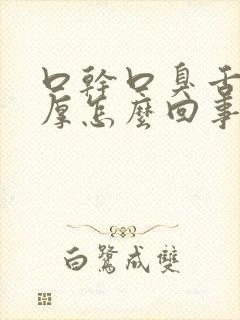 口幹口臭舌
厚怎麼回事
白鷺成雙